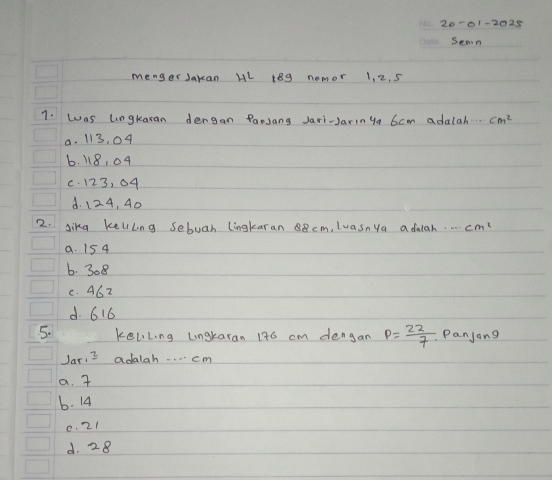 No. 20-01-2025
Date. Senin
mengerjakan HL 189 nomor 1,2,5
1. Luas lingkaran dengan Panjang Jari-Jarinya 6cm adalah... cm²
a. 113,04
b. 118,04
c. 123,04
d. 124,40
2. Jika keliling sebuah lingkaran 88cm, luasnya adalah .... cm²
a. 154
b. 308
c. 462
d. 616
5. keliling lingkaran 176 cm dengan P=22/7. Panjang
Jari² adalah .... cm
a. 7
b. 14
c. 21
d. 28